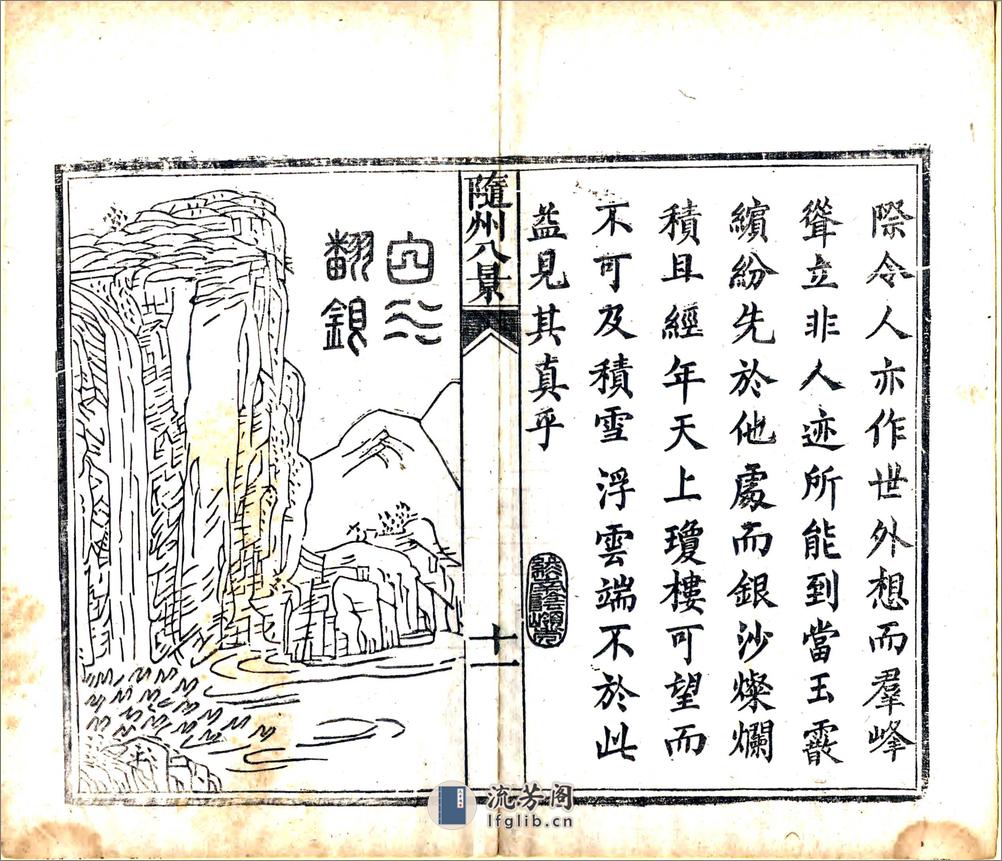 際令人亦作世外想而羣峰
聳立非人迹所能到當玉霰
繽紛先於他處而銀沙燦爛
積且經年天上瓊樓可望而
不可及積雪浮雲端不於此
益見其真乎
終南陰嶺秀
隨州八景
十一
翻銀
流芳阁
lfglib.cn